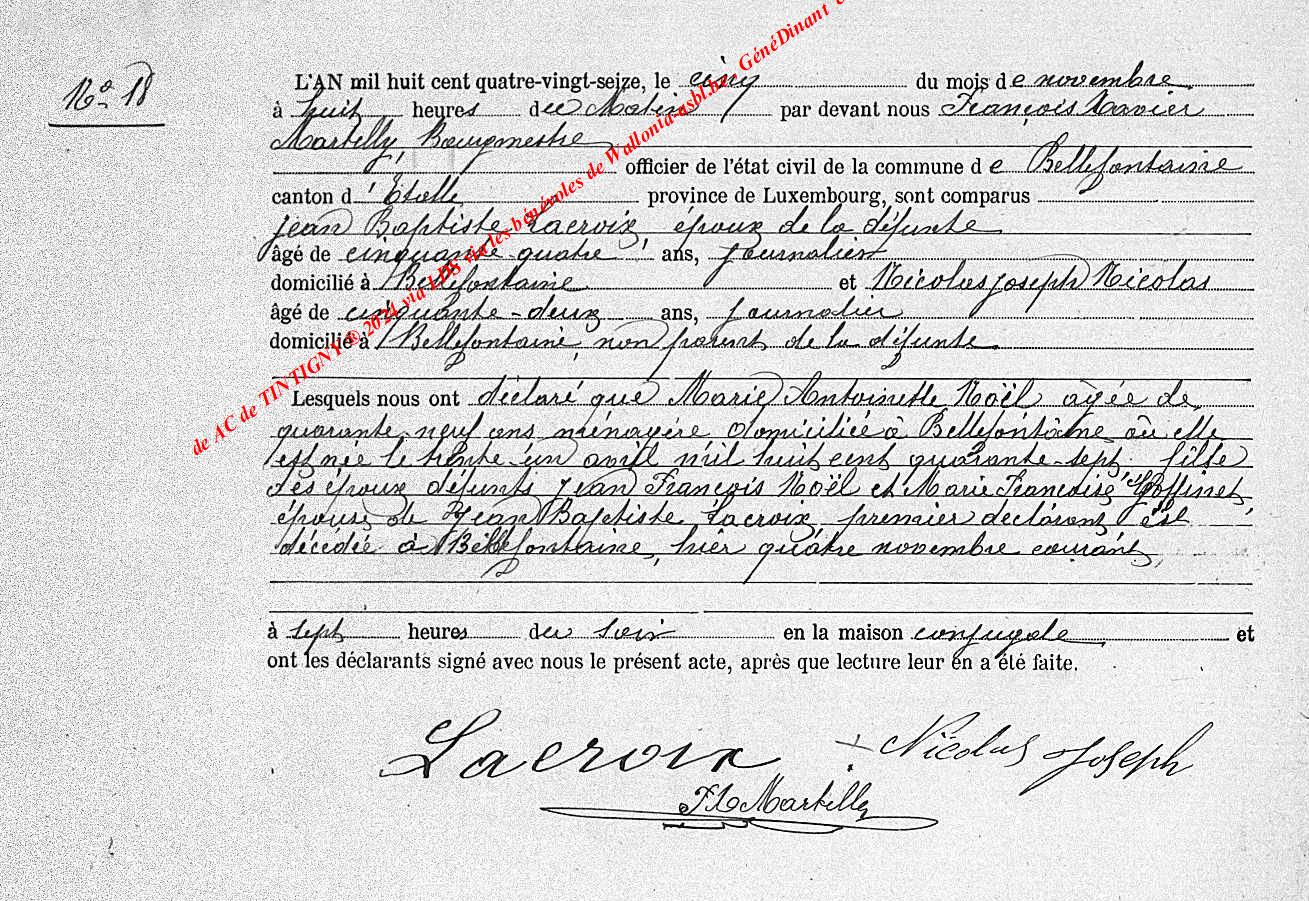 N° 18
L'AN mil huit cent quatre-vingt-seize, le cinq du mois de novembre
à huit heures du Matin par devant nous François Xavier
Martilly, Bourgmestre
officier de l'état civil de la commune de Bellefontaine
canton d'Etalle province de Luxembourg, sont comparus
Jean Baptiste Lacroix, époux de la défunte
âgé de cinquante-quatre ans, journalier
domicilié à Bellefontaine et Nicolas Joseph Nicolas
âgé de cinquante-deux ans, journalier
domicilié à Bellefontaine, non parent de la défunte.
Lesquels nous ont déclaré que Marie Antoinette Noël âgée de
quarante-neuf ans ménagère domiciliée à Bellefontaine où elle
est née le trente-un avril mil huit cent quarante-sept fille
des époux défunts Jean François Noël et Marie Françoise Goffinet,
épouse de Jean Baptiste Lacroix premier déclarant est
décédée à Bellefontaine, hier quatre novembre courant,
à sept heures du soir en la maison conjugale et
ont les déclarants signé avec nous le présent acte, après que lecture leur en a été faite.
Lacroix Nicolas Joseph
FX Martilly
de AC de TINTIGNY © 2024 via LDS via les bénévoles de Wallonia-asbl.be, GénéDinant